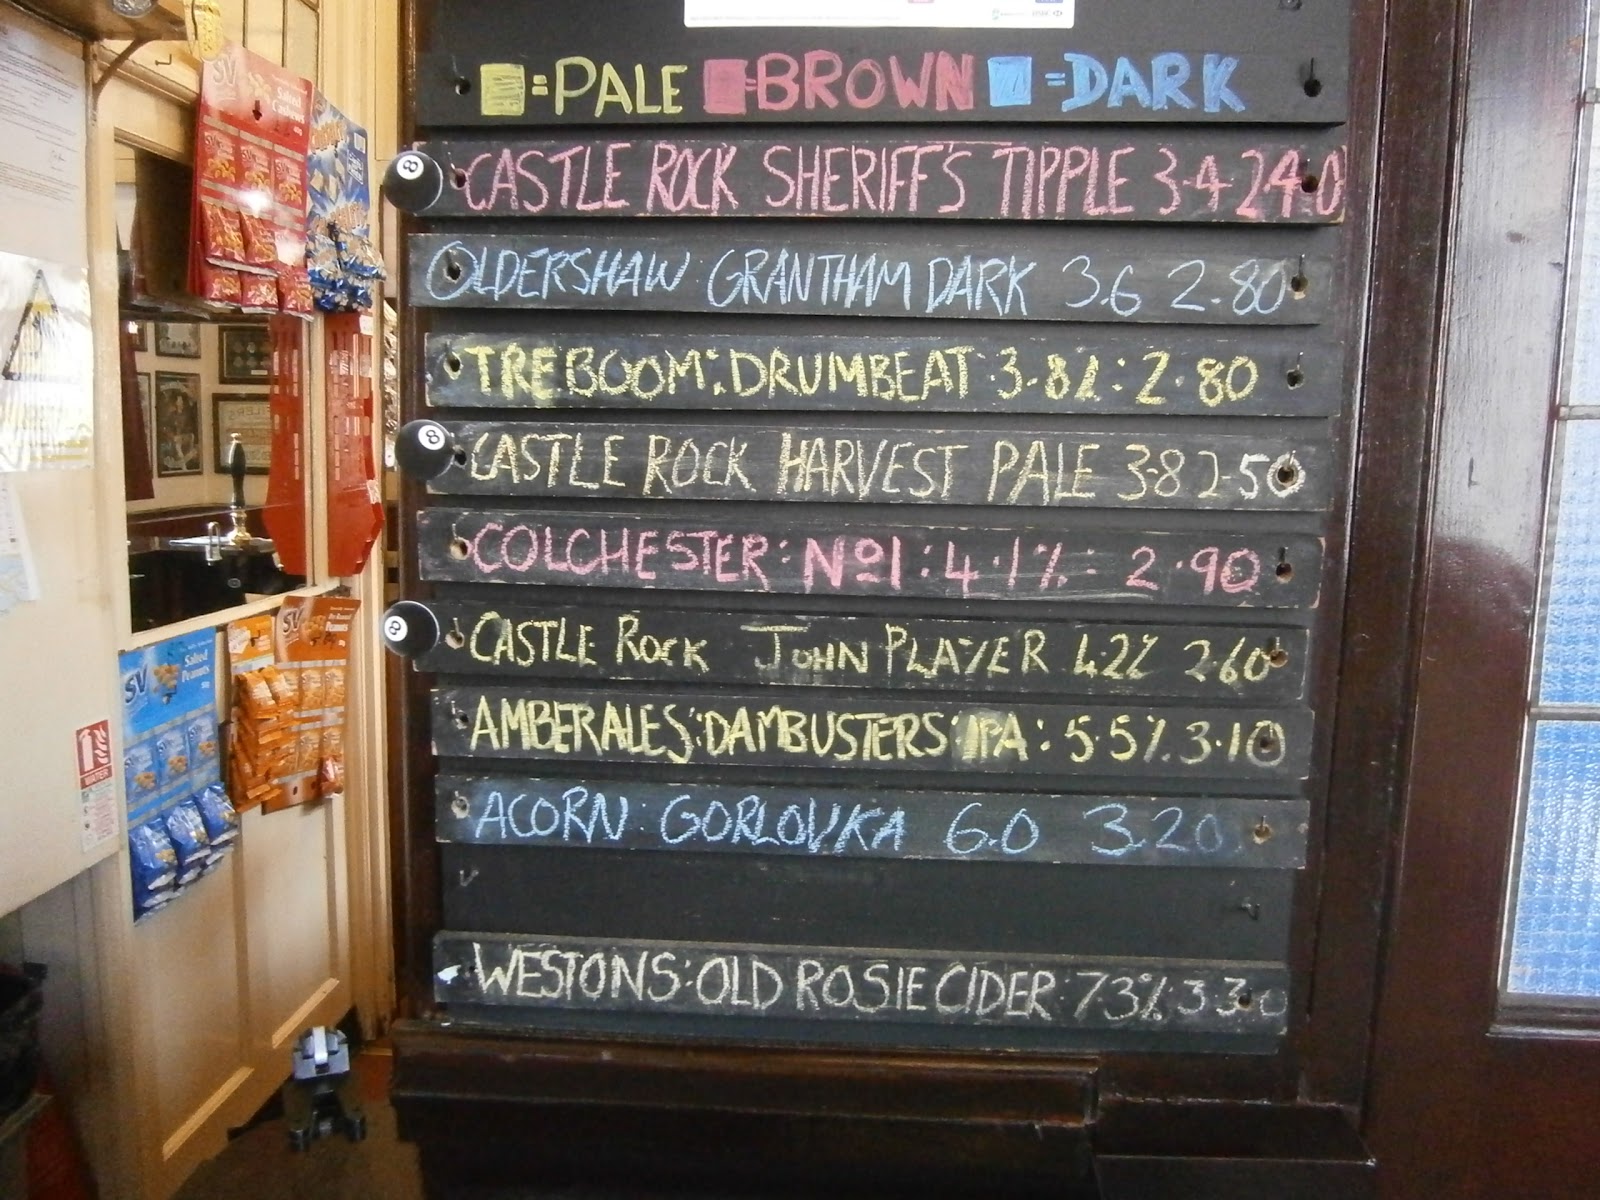 =PALE =BROWN =DARK
8 CASTLE ROCK SHERIFF'S TIPPLE 3.4 2.40
OLDERSHAW GRANTHAM DARK 3.6 2.80
TREBOOM: DRUMBEAT 3.8%: 2.80
8 CASTLE ROCK HARVEST PALE 3.8 2.50
COLCHESTER: No1: 4.1%: 2.90
8 CASTLE ROCK JOHN PLAYER 4.2% 2.60
AMBER ALES: DAMBUSTERS: IPA: 5.5% 3.10
ACORN: GORLOVKA 6.0 3.20
WESTONS: OLD ROSIE CIDER: 7.3% 3.30
SV
Salted
Cashews
SV
Salted
Peanuts
SV
Dry Roasted
Peanuts
WATER